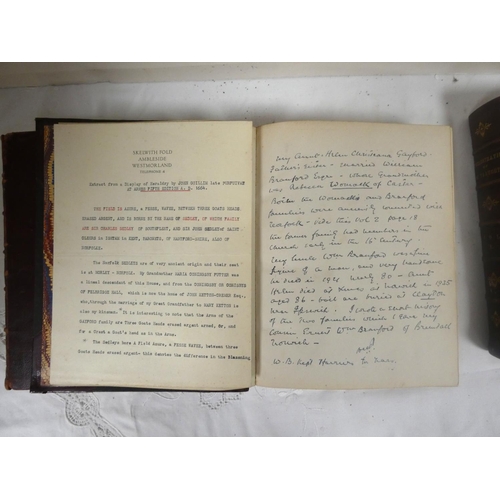 SKEDDYTH FOLD
AMBLESIDE
WESTMORLAND
Extract from a Display of Heraldry by JOHN GUILLIM late PURSUIVANT
AT ARMS FIFTH EDITION A. D. 1664.
THE FIELD IS AZURE, A FESSE, WAVEE, BETWEEN THREE GOATS HEADS
ERASED ARGENT, AND IS BORNE BY THE NAME OF SEDLEY, OF WHICH FAMILY
ARE SIR CHARLES SEDLEY OF SOUTHFLEET, AND SIR JOHN
OF IN KENT, BARONETS, OF DARTFORD ALSO OF
NORFOLK.
The Suffolk SEDLEYS are of very ancient origin and their seat
is at MORLEY - NORFOLK. My Grandmother MARIA
a lineal descendant of this House, and from the
of which is now the home of JOHN KETTON-CREMER Esq.
who, through the marriage of my Great Grandfather to MARY KETTON is
also my kinsman. It is interesting to note that the Arms of the
GAYFORD Family are Three Goats Heads erased argent Armed, Or, and
for a Crest a Goat's head as in the Arms.
The Sedleys bore A Field Azure, a FESSE WAVEE, between three
Goats Heads erased argent- thus denotes the difference in the Blazoning
My Aunt - Helen Christiana Gayford -
Father's Sister - married William
Branford Esqre - whose Grandmother
was Rebecca Womack of Castor -
Both the Womacks and Branford
families were anciently connected
Vol 2 page 18
the former family had members in the
Church early in the 16th Century -
My Uncle Wm Branford was a fine
figure of a man, and very handsome
he died in 1916 nearly 80 - Aunt
Helen died at in 1925
aged 86 - both are buried at
near - I wrote a short history
of the two families which I gave my
Cousin Ernest Wm Branford of Brundall
Norwich -
W.B. kept Harriers